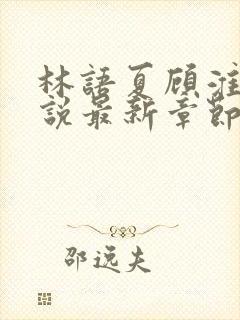 林語夏顧淮
說最新章節
邵逸夫